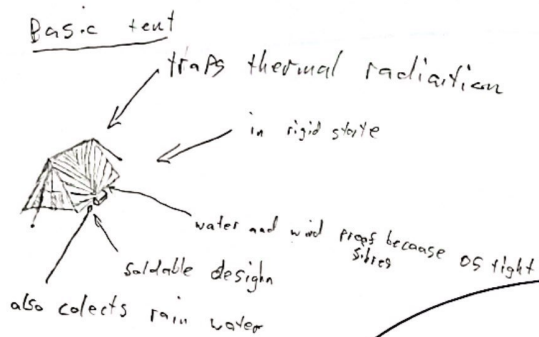 Basic tent
traps thermal radiartion
in rigid starte
water and wind proof because os tight
sibres
soldable desighn
also colects rain water